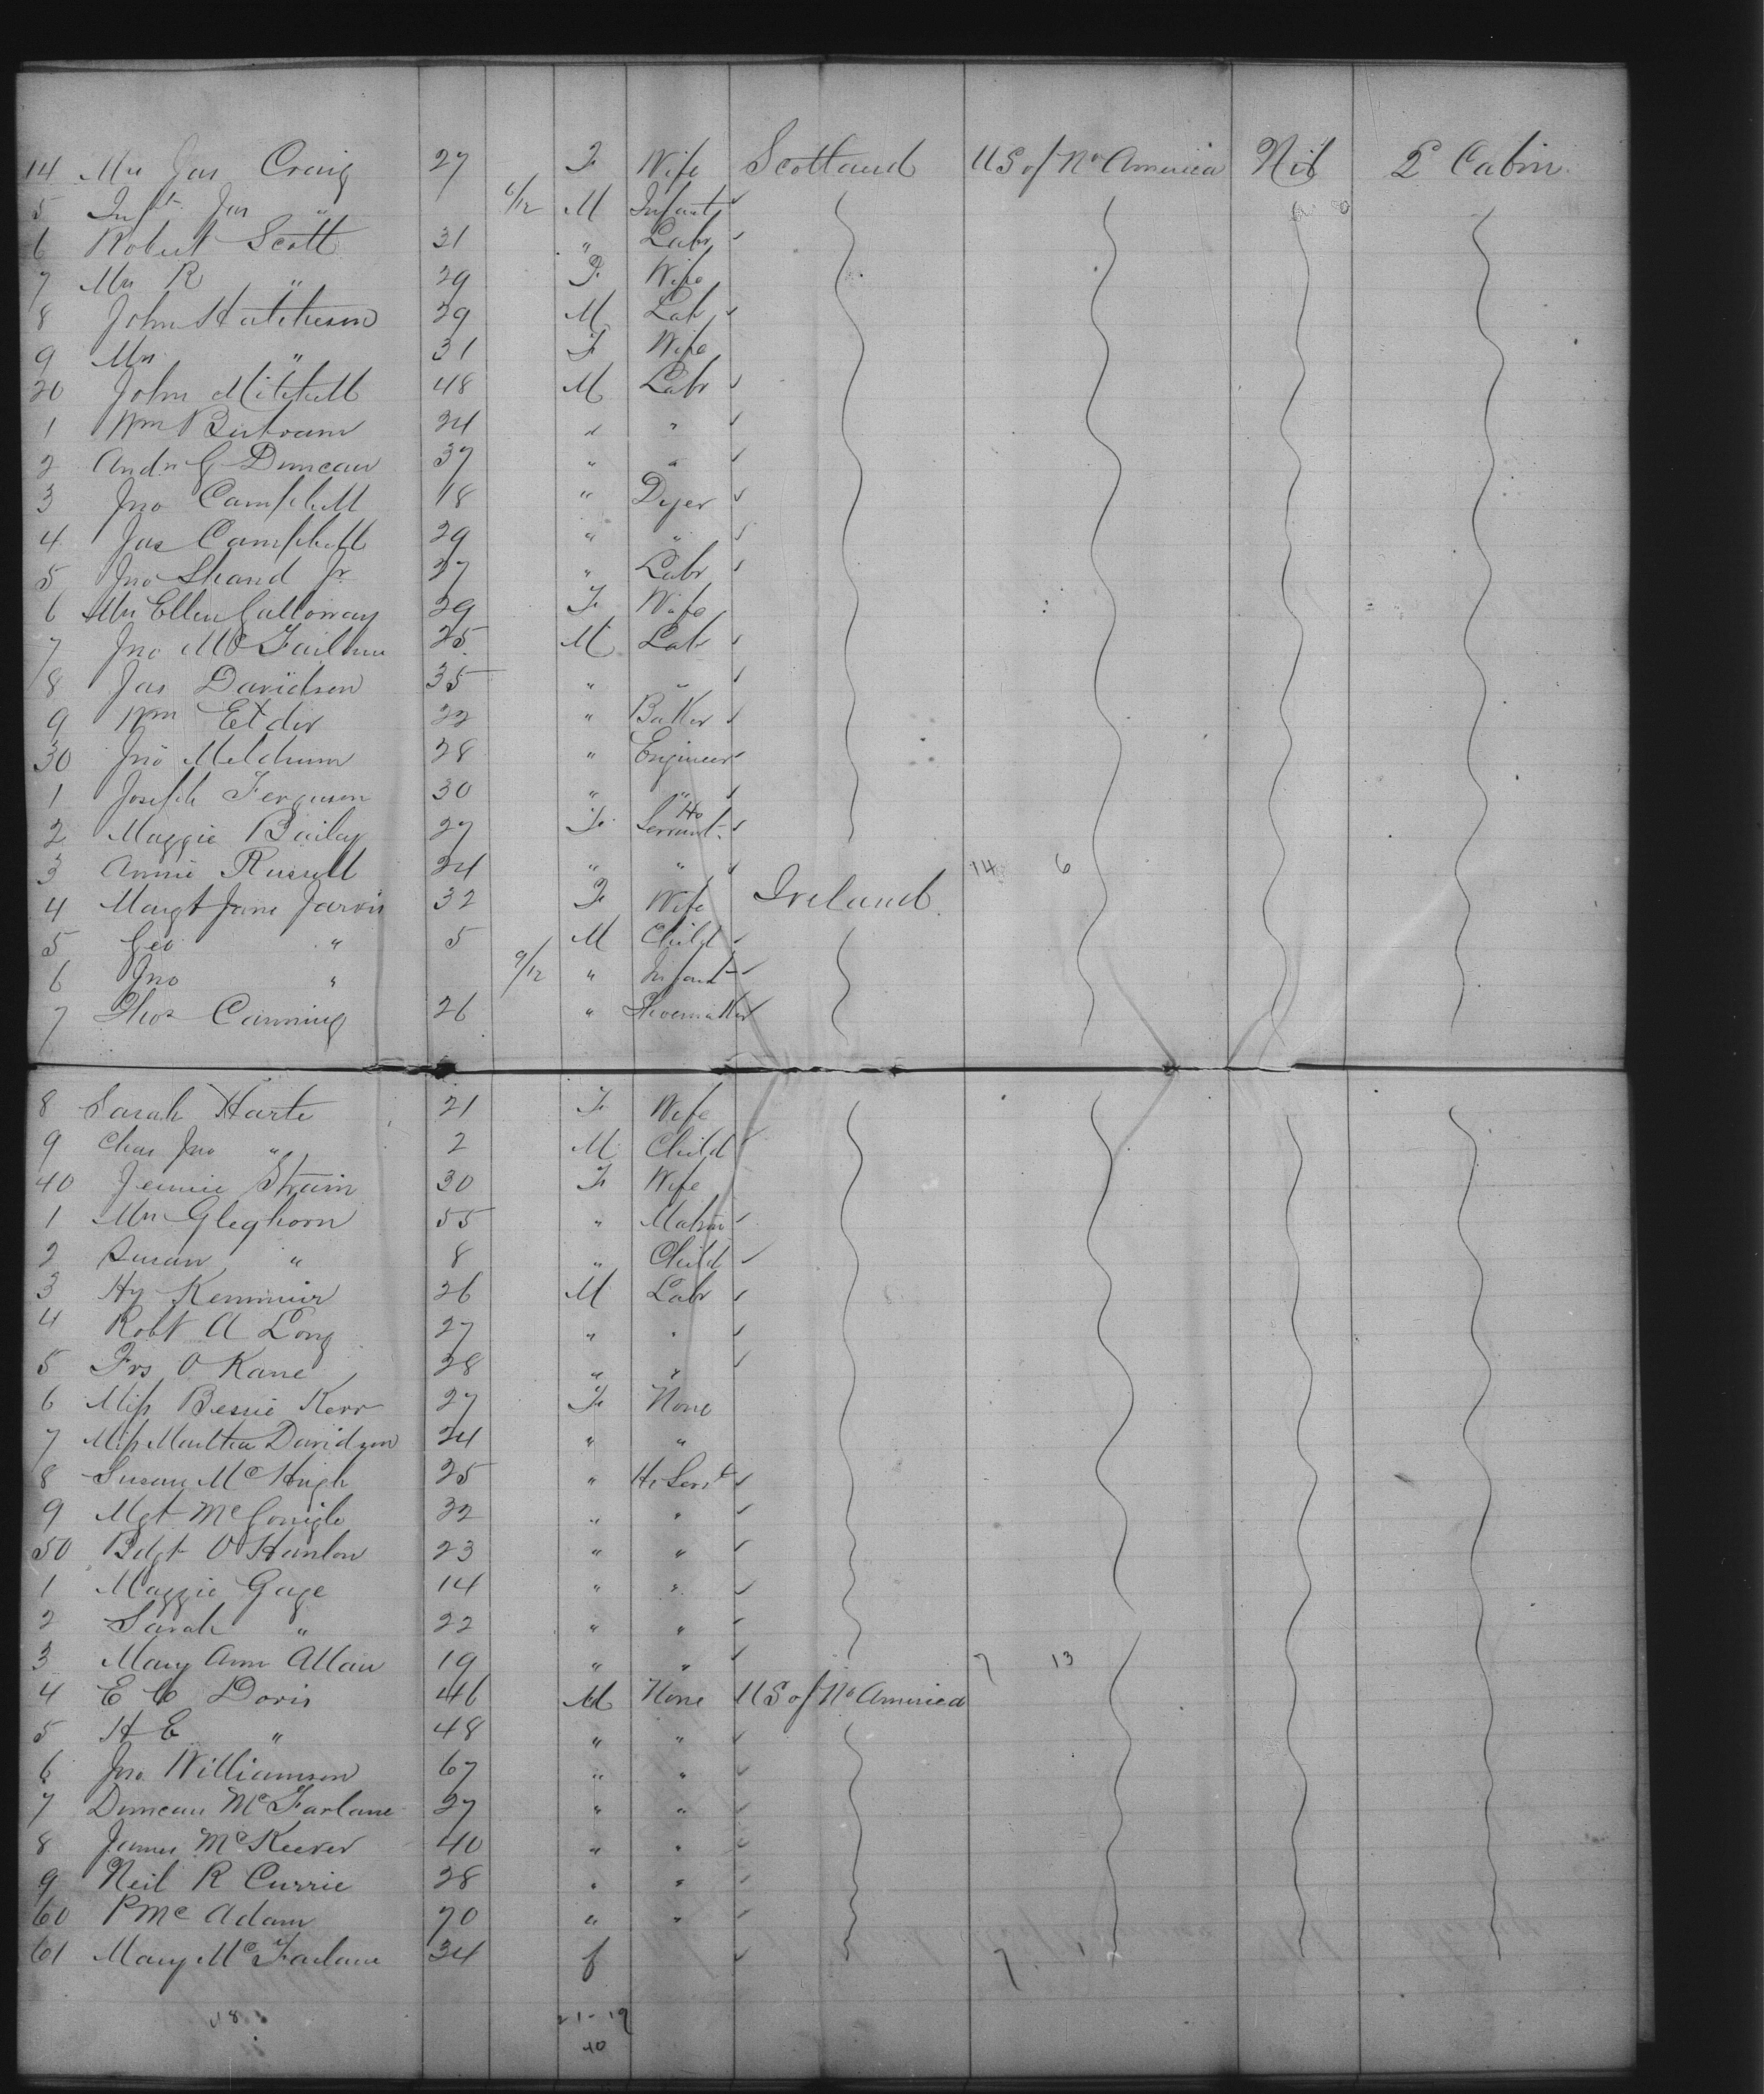 14 Mrs Jas Craig 27 F Wife Scotland US of No America Nil 2 Cabin
5 Inft Jas " 6/12 M Infant
6 Robert Scott 31 " Labr
7 Mrs R " 29 F Wife
8 John Hutcheson 29 M Lab
9 Mrs " 31 F Wife
20 John Mitchell 48 M Labr
1 Wm Bertram 24 " "
2 Andw G Duncan 37 " "
3 Jno Campbell 18 " Dyer
4 Jas Campbell 29 " "
5 Jno Shand Jr 27 " Labr
6 Mrs Ellen Galloway 29 F Wife
7 Jno McFarlane 25 M Lab
8 Jas Davidson 35 " "
9 Wm Elder 22 " Baker
30 Jno Meldrum 28 " Engineer
1 Joseph Ferguson 30 " "
2 Maggie Bailey 27 F Ho Servant
3 Annie Russell 24 " " 14 6
4 Margt Jane Jarvis 32 F Wife Ireland
5 Geo " 5 M Child
6 Jno " 9/12 " Infant
7 Thos Canning 26 " Shoemaker
8 Sarah Harte 21 F Wife
9 Chas Jno " 2 M Child
40 Jennie Strain 30 F Wife
1 Mrs Gleghorn 55 " Matron
2 Susan " 8 " Child
3 Hy Kenmuir 26 M Labr
4 Robt A Long 27 " "
5 Frs O Kane 28 " "
6 Miss Bessie Kerr 27 F None
7 Miss Martha Davidson 24 " "
8 Susan McHugh 25 " Ho Servt
9 Mgt McGonigle 32 " "
50 Bdgt O Hanlon 23 " "
1 Maggie Gage 14 " "
2 Sarah " 22 " "
3 Mary Ann Allan 19 " " 7 13
4 E C Doris 46 M None US of No America
5 H E " 48 " "
6 Jno Williamson 67 " "
7 Duncan McFarlane 27 " "
8 James McKeever 40 " "
9 Neil R Currie 28 " "
60 P McAdam 70 " "
61 Mary McFarlane 34 f 7 1
48 21-19
40